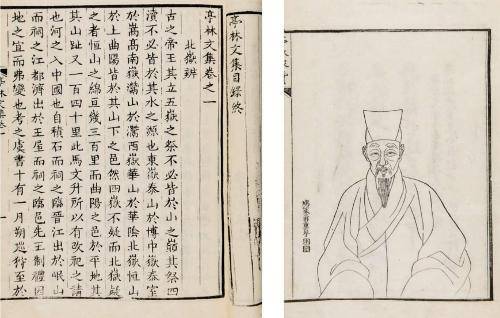 亭林文集目錄終
亭林文集卷之一
北嶽辨
古之帝王其立五嶽之祭不必皆於山之巔其祭四
瀆不必皆於其水之源也東嶽泰山於博中嶽泰室
於嵩高南嶽灊山於灊西嶽華山於華陰北嶽恒山
於上曲陽皆於其山下之邑然四嶽不疑而北嶽疑
之者恒山之綿亘幾三百里而曲陽之邑於平地其
去山趾又一百四十里此馬文升所以有改祀之請
也河之入中國也自積石而祠之臨晉江出於岷山
而祠之江都濟出於王屋而祠之臨邑先王制禮因
地之宜而弗變也考之虞書十有一月朔巡狩至於
亭林文集卷一